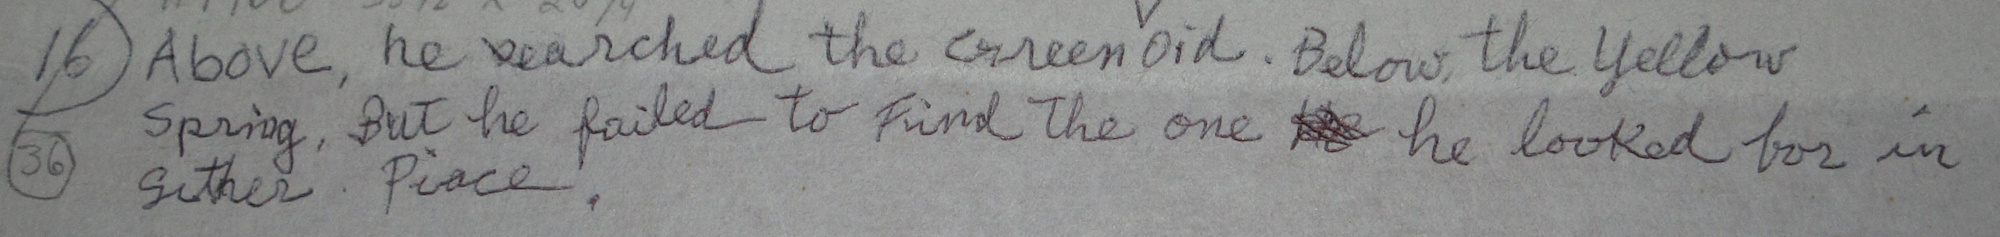 16) Above, he searched the Green Void. Below, the Yellow
Spring, But he failed to Find The one he looked for in
36 Either Place.